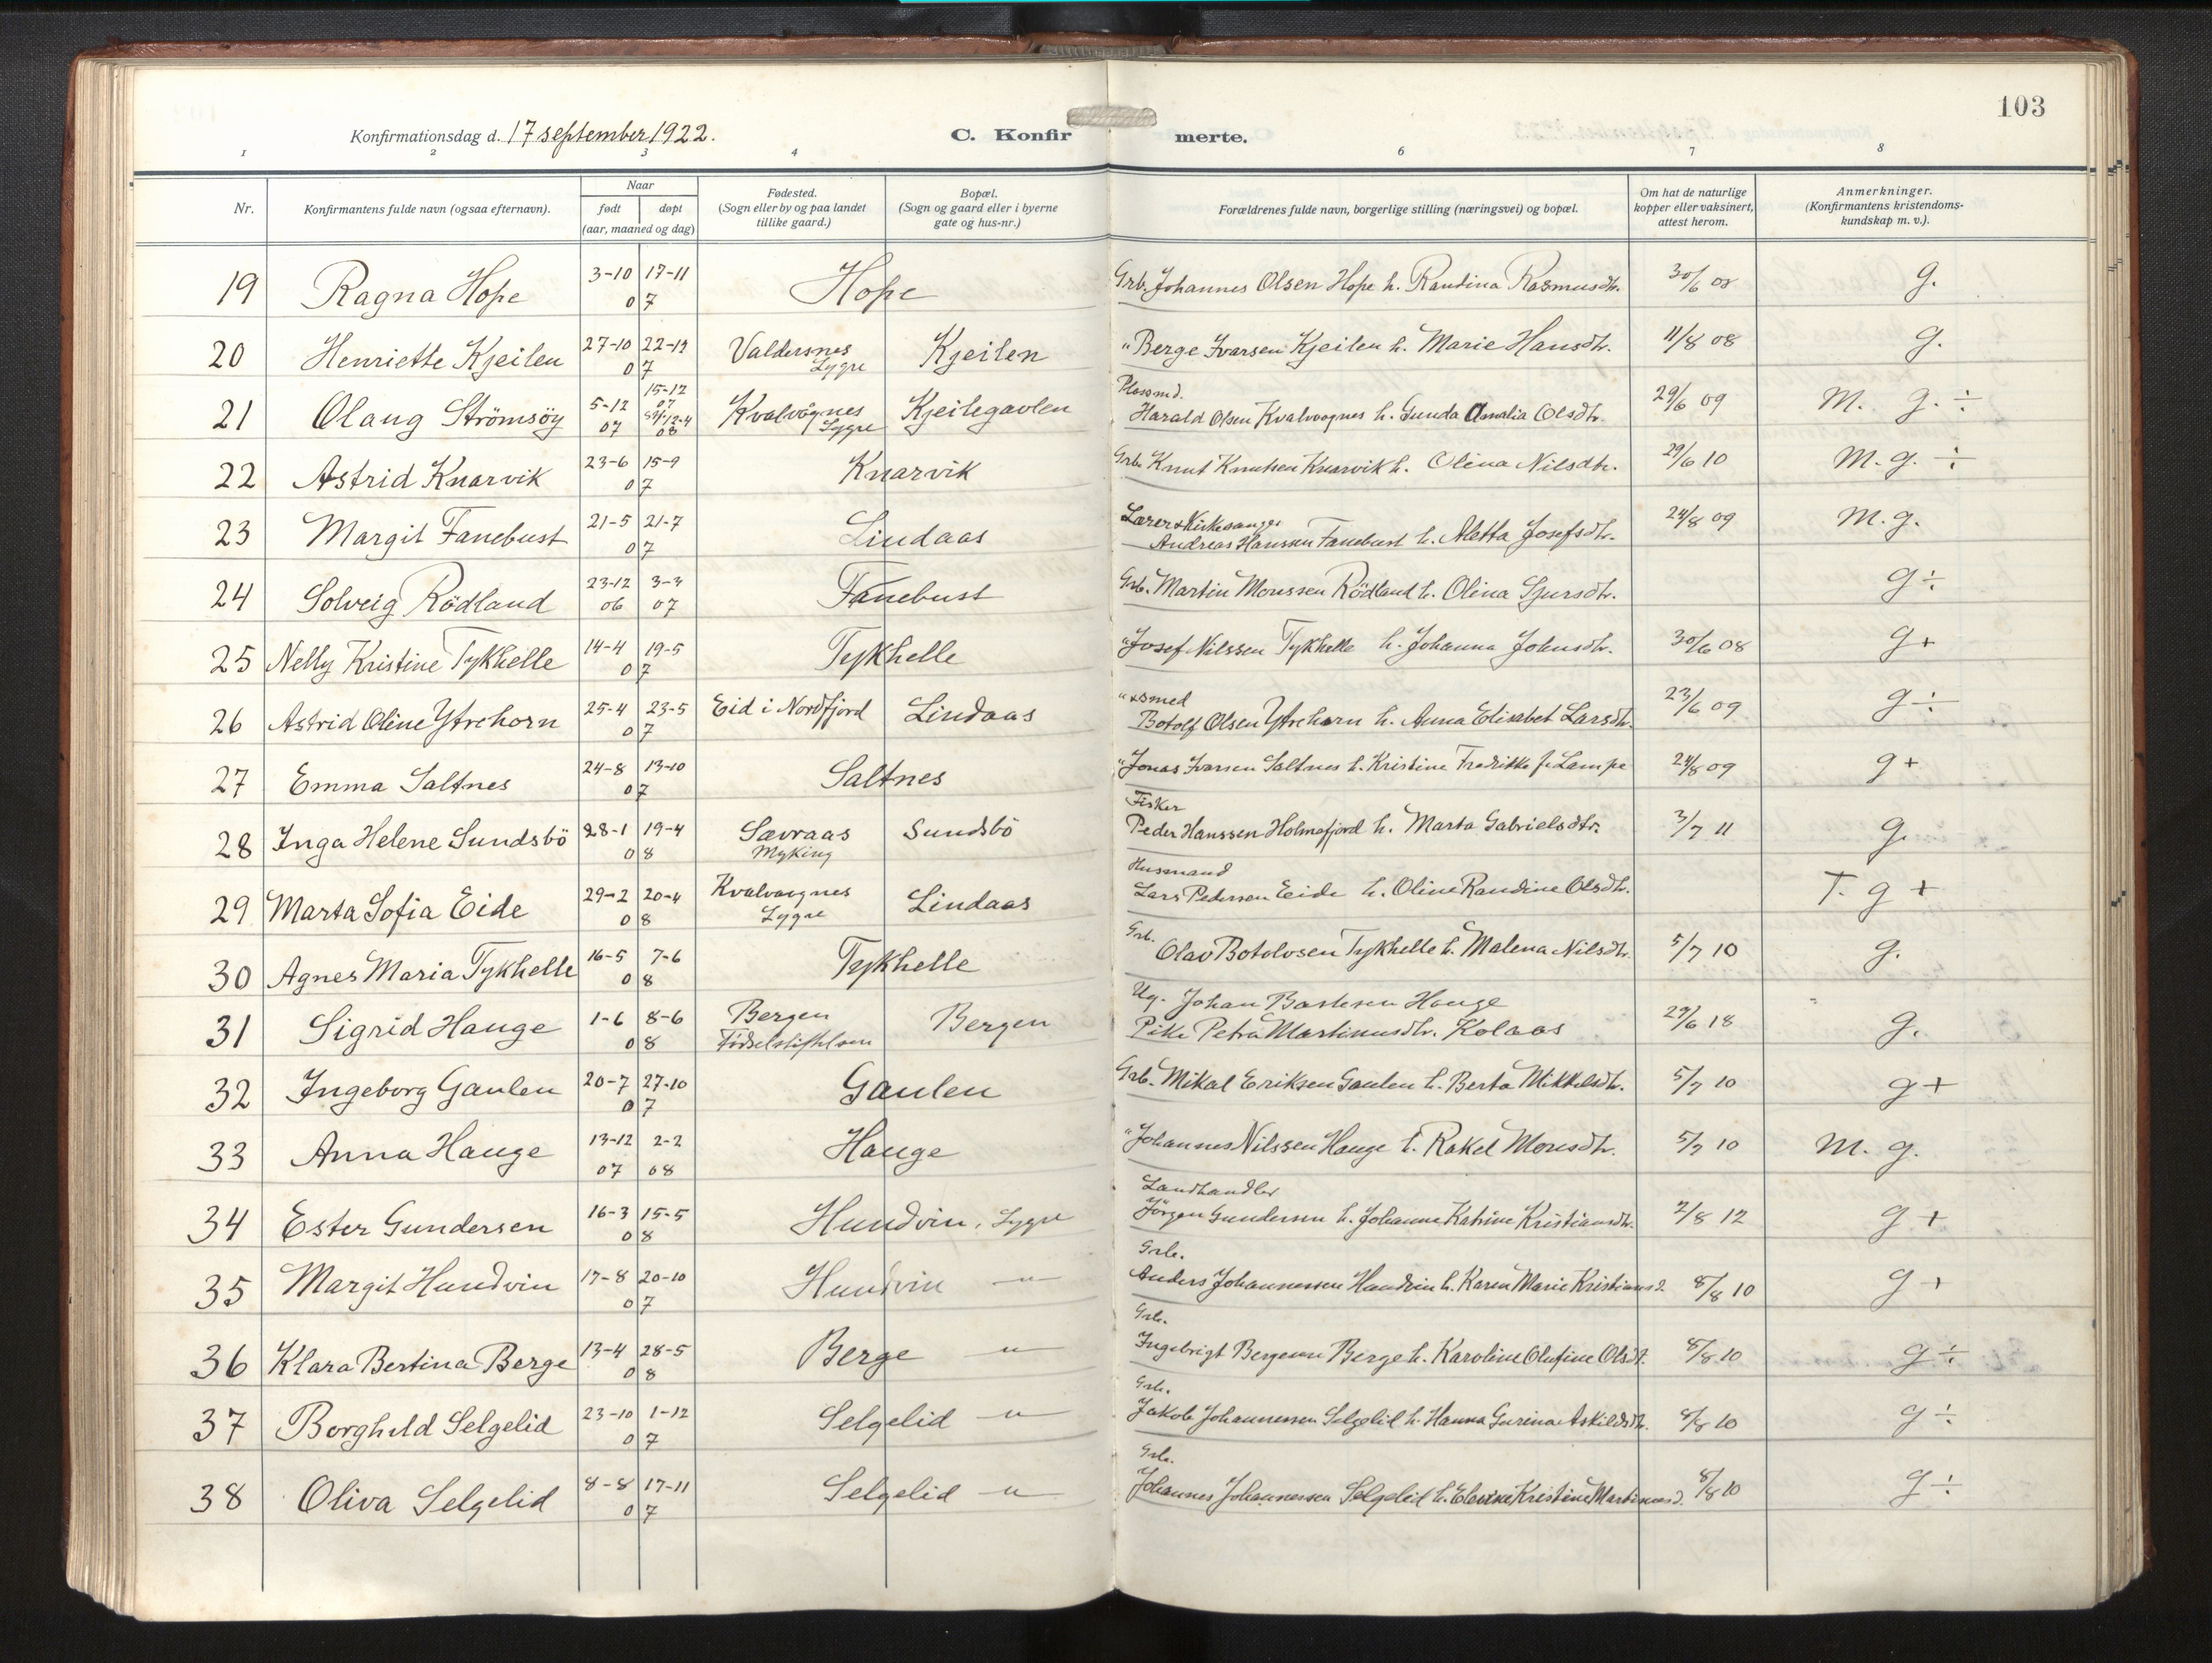 103
Konfirmationsdag d. 17 september 1922. C. Konfir merte.
1 2 3 4 6 7 8
Nr. Konfirmantens fulde navn (ogsaa efternavn). Naar født døpt (aar, maaned og dag) Fødested. (Sogn eller by og paa landet tillike gaard.) Bopæl. (Sogn og gaard eller i byerne gate og hus-nr.) Forældrenes fulde navn, borgerlige stilling (næringsvei) og bopæl. Om hat de naturlige kopper eller vaksinert, attest herom. Anmerkninger. (Konfirmantens kristendoms-kundskap m. v.).
19 Ragna Hope 3-10 07 17-11 07 Hope Grb. Johannes Olsen Hope h. Randina Rasmusdtr. 30/6 08 g.
20 Henriette Kjeilen 27-10 07 22-12 07 Valdersnes Lygre Kjeilen " Berge Ivarsen Kjeilen h. Marie Hansdtr. 11/8 08 g.
21 Olaug Strömsöy 5-12 07 15-12 07 12-4 08 Kvalvågnes Lygre Kjeilegavlen Plassmd. Harald Olsen Kvalvaagnes h. Gunda Amalia Olsdtr. 29/6 09 M. g. ÷
22 Astrid Knarvik 23-6 07 15-9 07 Knarvik Grb. Knut Knutsen Knarvik h. Olina Nilsdtr. 29/6 10 M. g. ÷
23 Margit Fanebust 21-5 07 21-7 07 Lindaas Lærer & Kirkesanger Andreas Hanssen Fanebust h. Aletta Josefsdtr. 24/8 09 M. g.
24 Solveig Rödland 23-12 06 3-3 07 Fanebust Grb. Martin Monssen Rödland h. Olina Sjursdtr. g ÷
25 Nelly Kristine Tykhelle 14-4 07 19-5 07 Tykhelle " Josef Nilssen Tykhelle h. Johanna Johnsdtr. 30/6 08 g +
26 Astrid Oline Ytrehorn 25-4 07 23-5 07 Eid i Nordfjord Lindaas " & smed Botolf Olsen Ytrehorn h. Anna Elisabet Larsdtr. 23/6 09 g ÷
27 Emma Saltnes 24-8 07 13-10 07 Saltnes " Jonas Ivarsen Saltnes h. Kristine Fredrikke f. Lampe 24/8 09 g +
28 Inga Helene Sundsbö 28-1 08 19-4 08 Sævraas Myking Sundsbö Fisker Peder Hanssen Holmafjord h. Marta Gabrielsdtr. 3/7 11 g.
29 Marta Sofia Eide 29-2 08 20-4 08 Kvalvaagnes Lygre Lindaas Husmand Lars Pedersen Eide h. Oline Randine Olsdtr. T. g +
30 Agnes Maria Tykhelle 16-5 08 7-6 08 Tykhelle Grb. Olav Botolvsen Tykhelle h. Malena Nilsdtr. 5/7 10 g.
31 Sigrid Hauge 1-6 08 8-6 08 Bergen Födselstiftelsen Bergen Ug. Johan Bastesen Hauge Pike Petra Martinusdtr. Kolaas 29/6 18 g.
32 Ingeborg Gaulen 20-7 07 27-10 07 Gaulen Grb. Mikal Eriksen Gaulen h. Berta Mikkelsdtr. 5/7 10 g +
33 Anna Hauge 13-12 07 2-2 08 Hauge " Johannes Nilssen Hauge h. Rakel Monsdtr. 5/7 10 M. g.
34 Ester Gundersen 16-3 08 15-5 08 Hundvin, Lygre Landhandler Jörgen Gundersen h. Johanne Katrine Kristiansdtr. 2/8 12 g +
35 Margit Hundvin 17-8 07 20-10 07 Hundvin —"— Grb. Anders Johannessen Hundvin h. Karen Marie Kristiansd. 8/8 10 g +
36 Klara Bertina Berge 13-4 08 28-5 08 Berge —"— Grb. Ingebrigt Bergesen Berge h. Karoline Olufine Olsdt. 8/8 10 g ÷
37 Borghild Selgelid 23-10 07 1-12 07 Selgelid —"— Grb. Jakob Johannessen Selgelid h. Hanna Gurina Askildsdtr. 8/8 10 g ÷
38 Oliva Selgelid 8-8 07 17-11 07 Selgelid —"— Grb. Johannes Johannessen Selgelid h. Kristine Martinusd. 8/8 10 g ÷